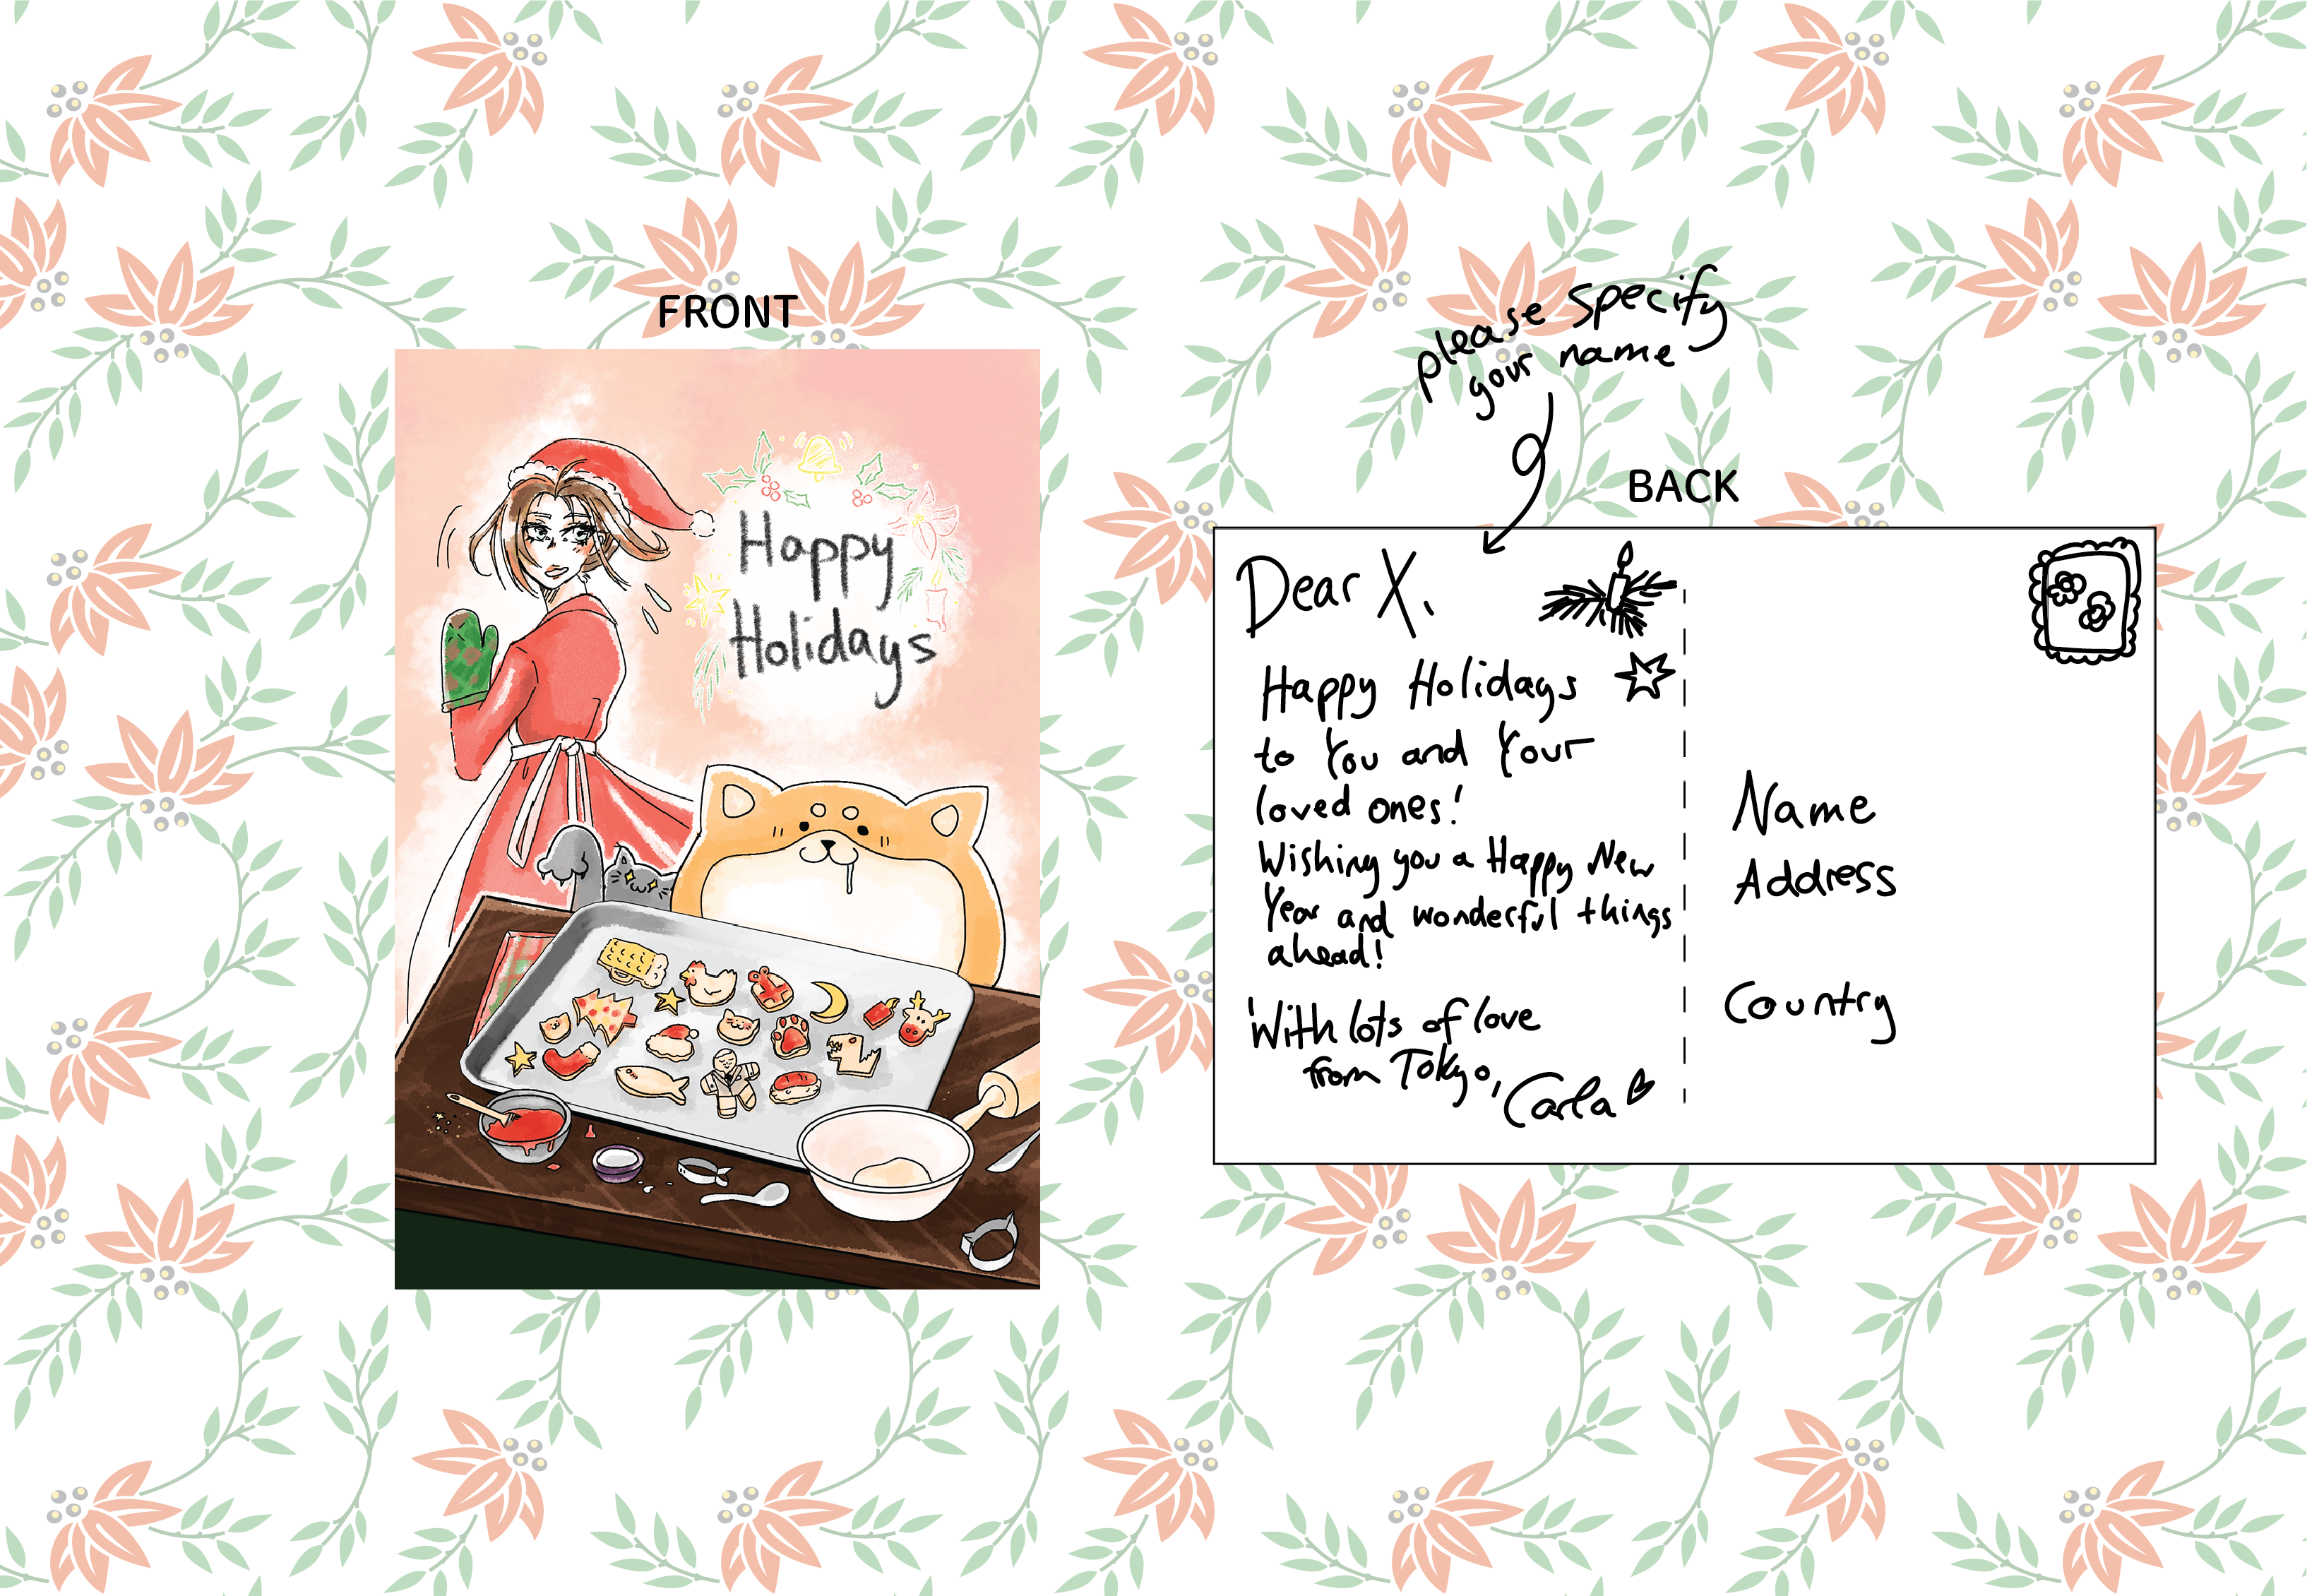 FRONT
Happy
Holidays
please specify
your name
BACK
Dear X,
Happy Holidays
to You and Your
loved ones!
Wishing you a Happy New
Year and wonderful things
ahead!
With lots of love
from Tokyo,
Carla
Name
Address
Country